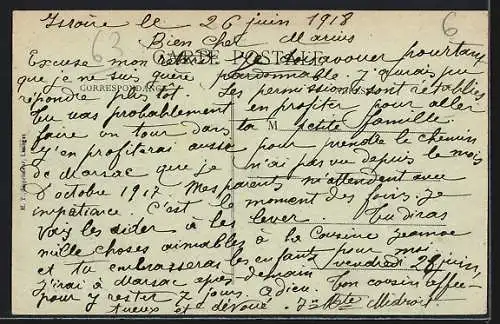 Issoire le 26 juin 1918
63
6
Bien cher Marius
CARTE POSTALE
Excuse mon retard. Je dois avouer pourtant
que je ne suis guère pardonnable. J'aurais pu
CORRESPONDANCE
répondre plus tôt. Les permissions sont rétablies
Tu vas probablement en profiter pour aller
faire un tour dans ta petite famille.
M
J'en profiterai aussi pour prendre le chemin
de Marsac que je n'ai pas vu depuis le mois
d'octobre 1917. Mes parents m'attendent avec
impatience. C'est le moment des foins. Je
vais les aider à les lever. Tu diras
mille choses aimables à la cousine Jeanne
et tu embrasseras les enfants pour moi.
J'irai à Marsac après-demain vendredi 28 juin,
pour y rester 7 jours. Adieu. Ton cousin affec-
tueux et dévoué. J. Bte